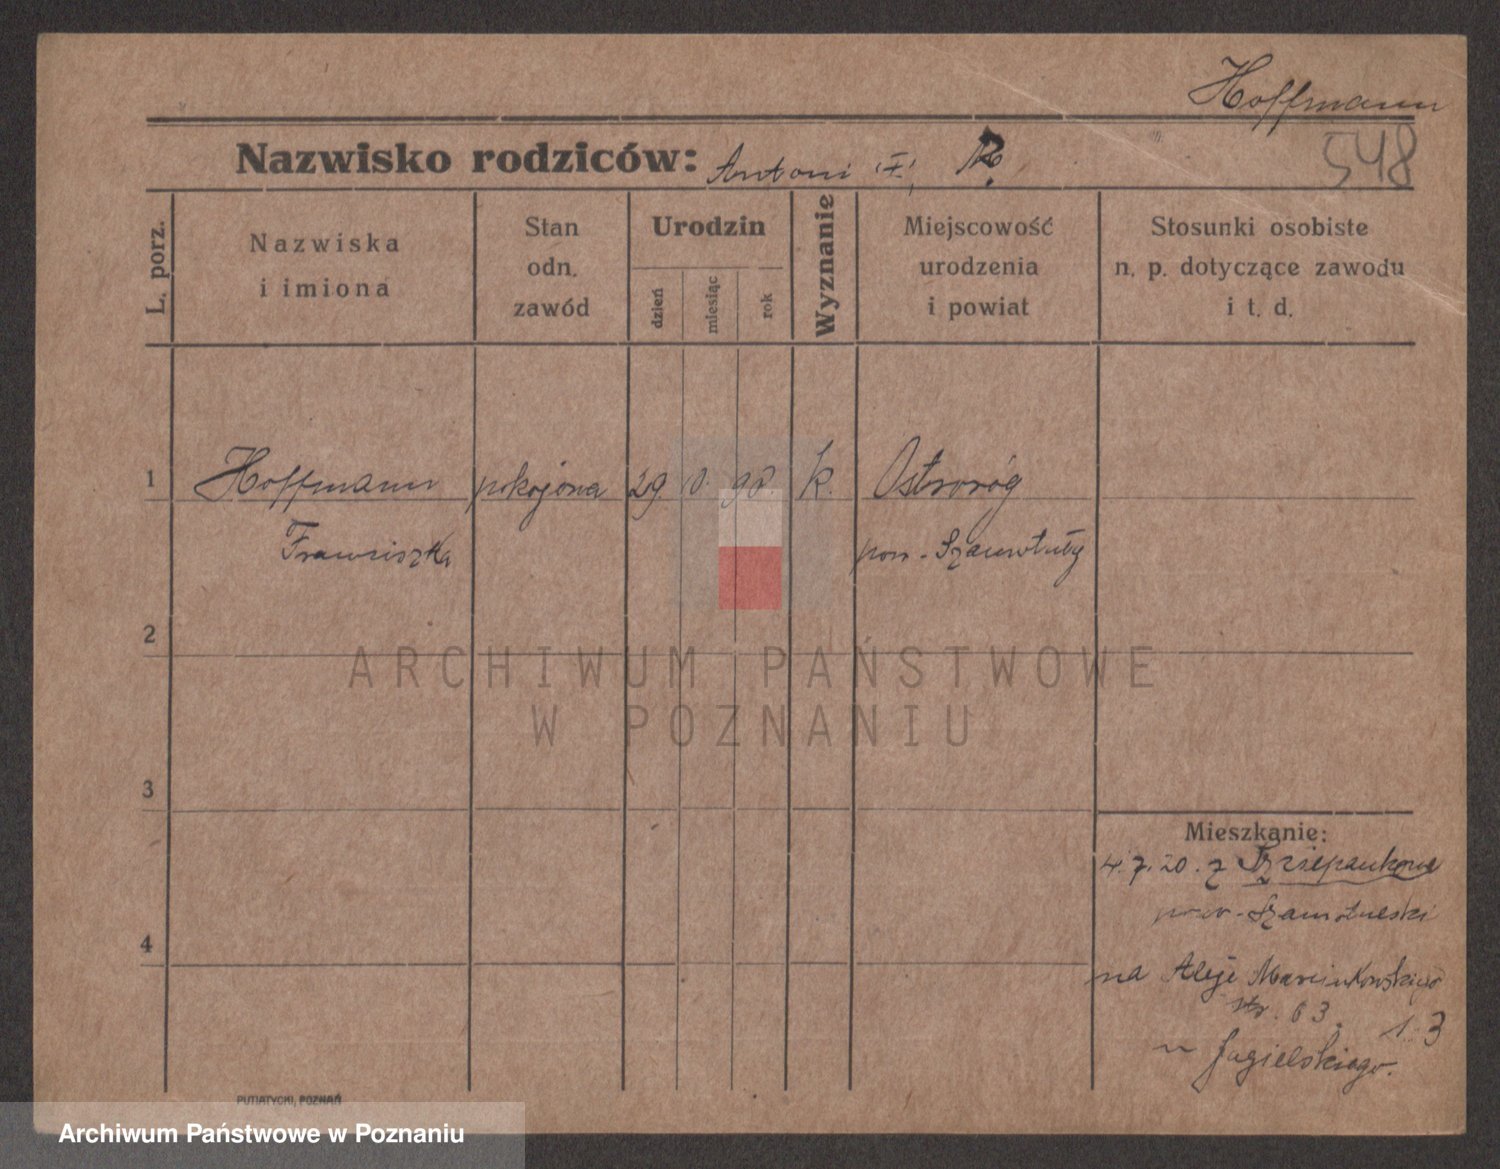 Hoffmann
548
Nazwisko rodziców: Antoni
L. porz.
Nazwiska
i imiona
Stan
odn.
zawód
Urodzin
dzień
miesiąc
rok
Wyznanie
Miejscowość
urodzenia
i powiat
Stosunki osobiste
n. p. dotyczące zawodu
i t. d.
1 Hoffmann pokojowa 29 98 k. Ostroróg
Franciszka pow. Szamotuły
2
ARCHIWUM PAŃSTWOWE
W POZNANIU
3
Mieszkanie:
4.7.20. z Szczepankowa
pow. Szamotulski
4
na Aleje Marcinkowskiego
63
u Jagielskiego.
PUTIATYCKI, POZNAŃ
Archiwum Państwowe w Poznaniu